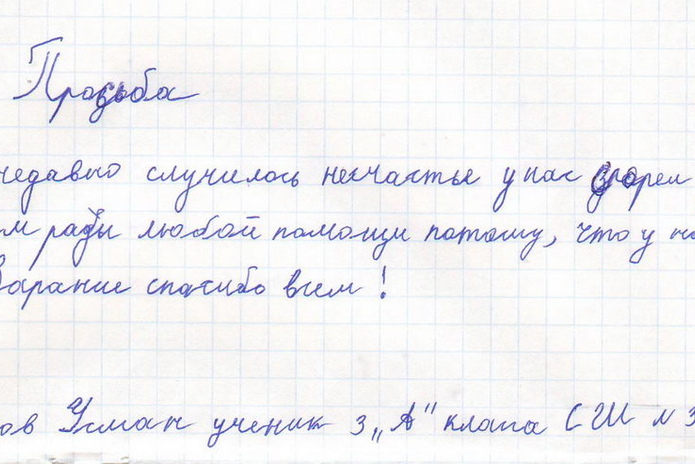 Прозьба
недавно случилось несчастье у нас згорел
м рады любой помощи потому, что у на
Зарание спасибо всем!
ов Усман ученик 3 „А" класа СШ № 3